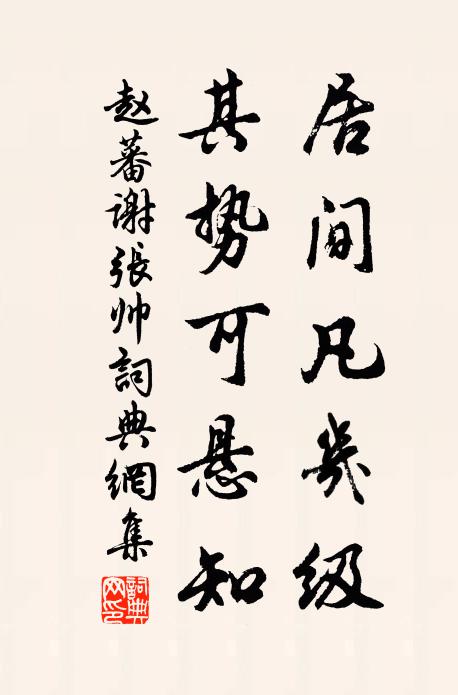 居间凡几级
其势可悬知
赵蕃谢張帅詞典網集
詞典网印